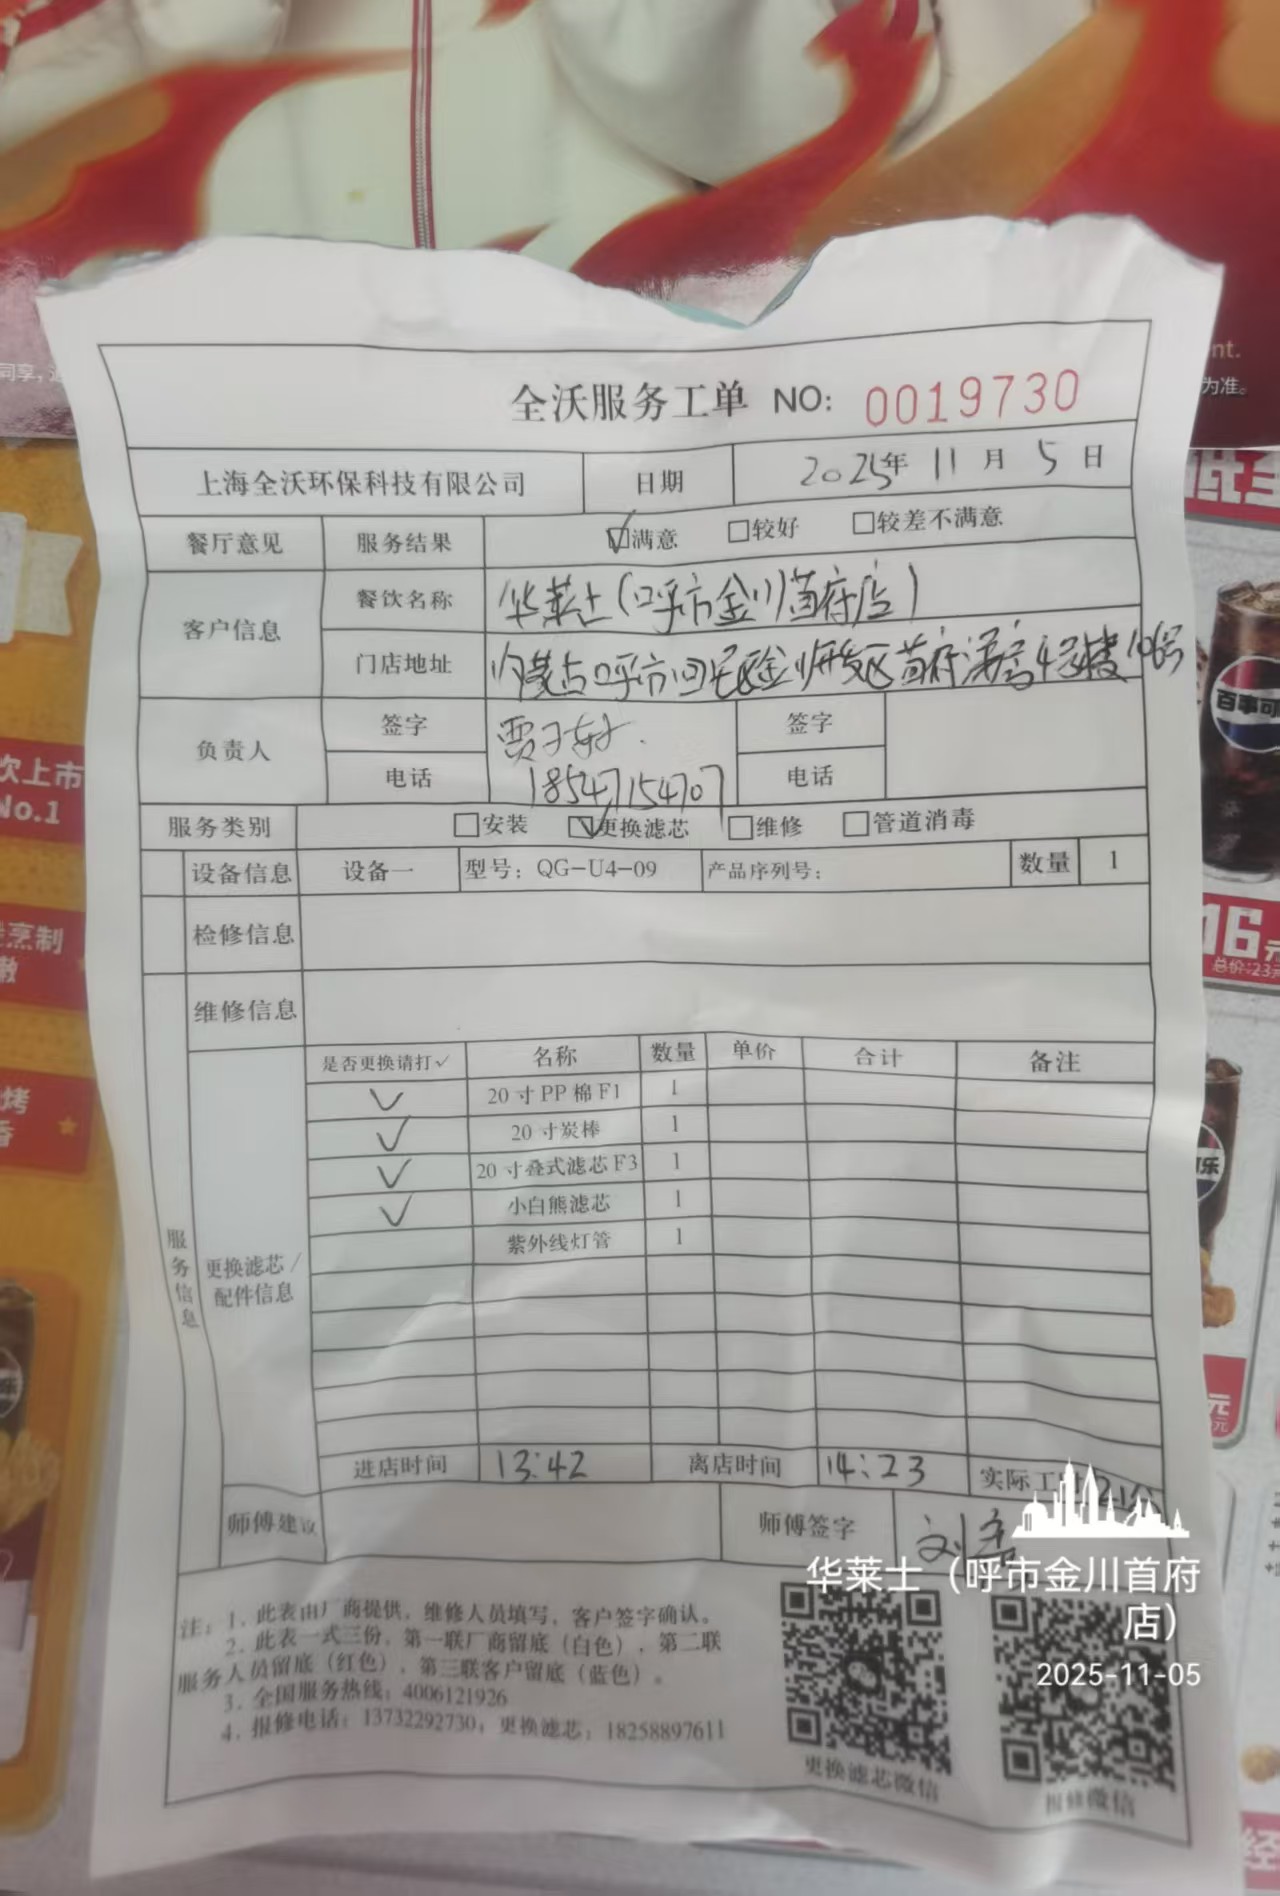 全沃服务工单 NO: 0019730
上海全沃环保科技有限公司 日期 2025年 11 月 5 日
餐厅意见 服务结果 ☑满意 □较好 □较差不满意
客户信息 餐饮名称 华莱士(呼市金川首府店)
门店地址 内蒙古呼市回民区金川开发区首府 4号楼 106号
负责人 签字 贾 签字
电话 18547154707 电话
服务类别 □安装 ☑更换滤芯 □维修 □管道消毒
设备信息 设备一 型号: QG-U4-09 产品序列号: 数量 1
检修信息
维修信息
服务信息
更换滤芯/
配件信息
是否更换请打✓ 名称 数量 单价 合计 备注
✓ 20寸PP棉F1 1
✓ 20寸炭棒 1
✓ 20寸叠式滤芯F3 1
✓ 小白熊滤芯 1
紫外线灯管 1
进店时间 13:42 离店时间 14:23 实际工时
师傅建议 师傅签字 刘
注: 1. 此表由厂商提供, 维修人员填写, 客户签字确认。
2. 此表一式三份, 第一联厂商留底(白色), 第二联
服务人员留底(红色), 第三联客户留底(蓝色)。
3. 全国服务热线: 4006121926
4. 报修电话: 13732292730; 更换滤芯: 18258897611
更换滤芯微信 报修微信
华莱士（呼市金川首府
店）
2025-11-05
同享,
nt.
为准。
饮上市
No.1
烹制
嫩
烤
香
百事可
16元
总价:23元
乐
元
乐
经